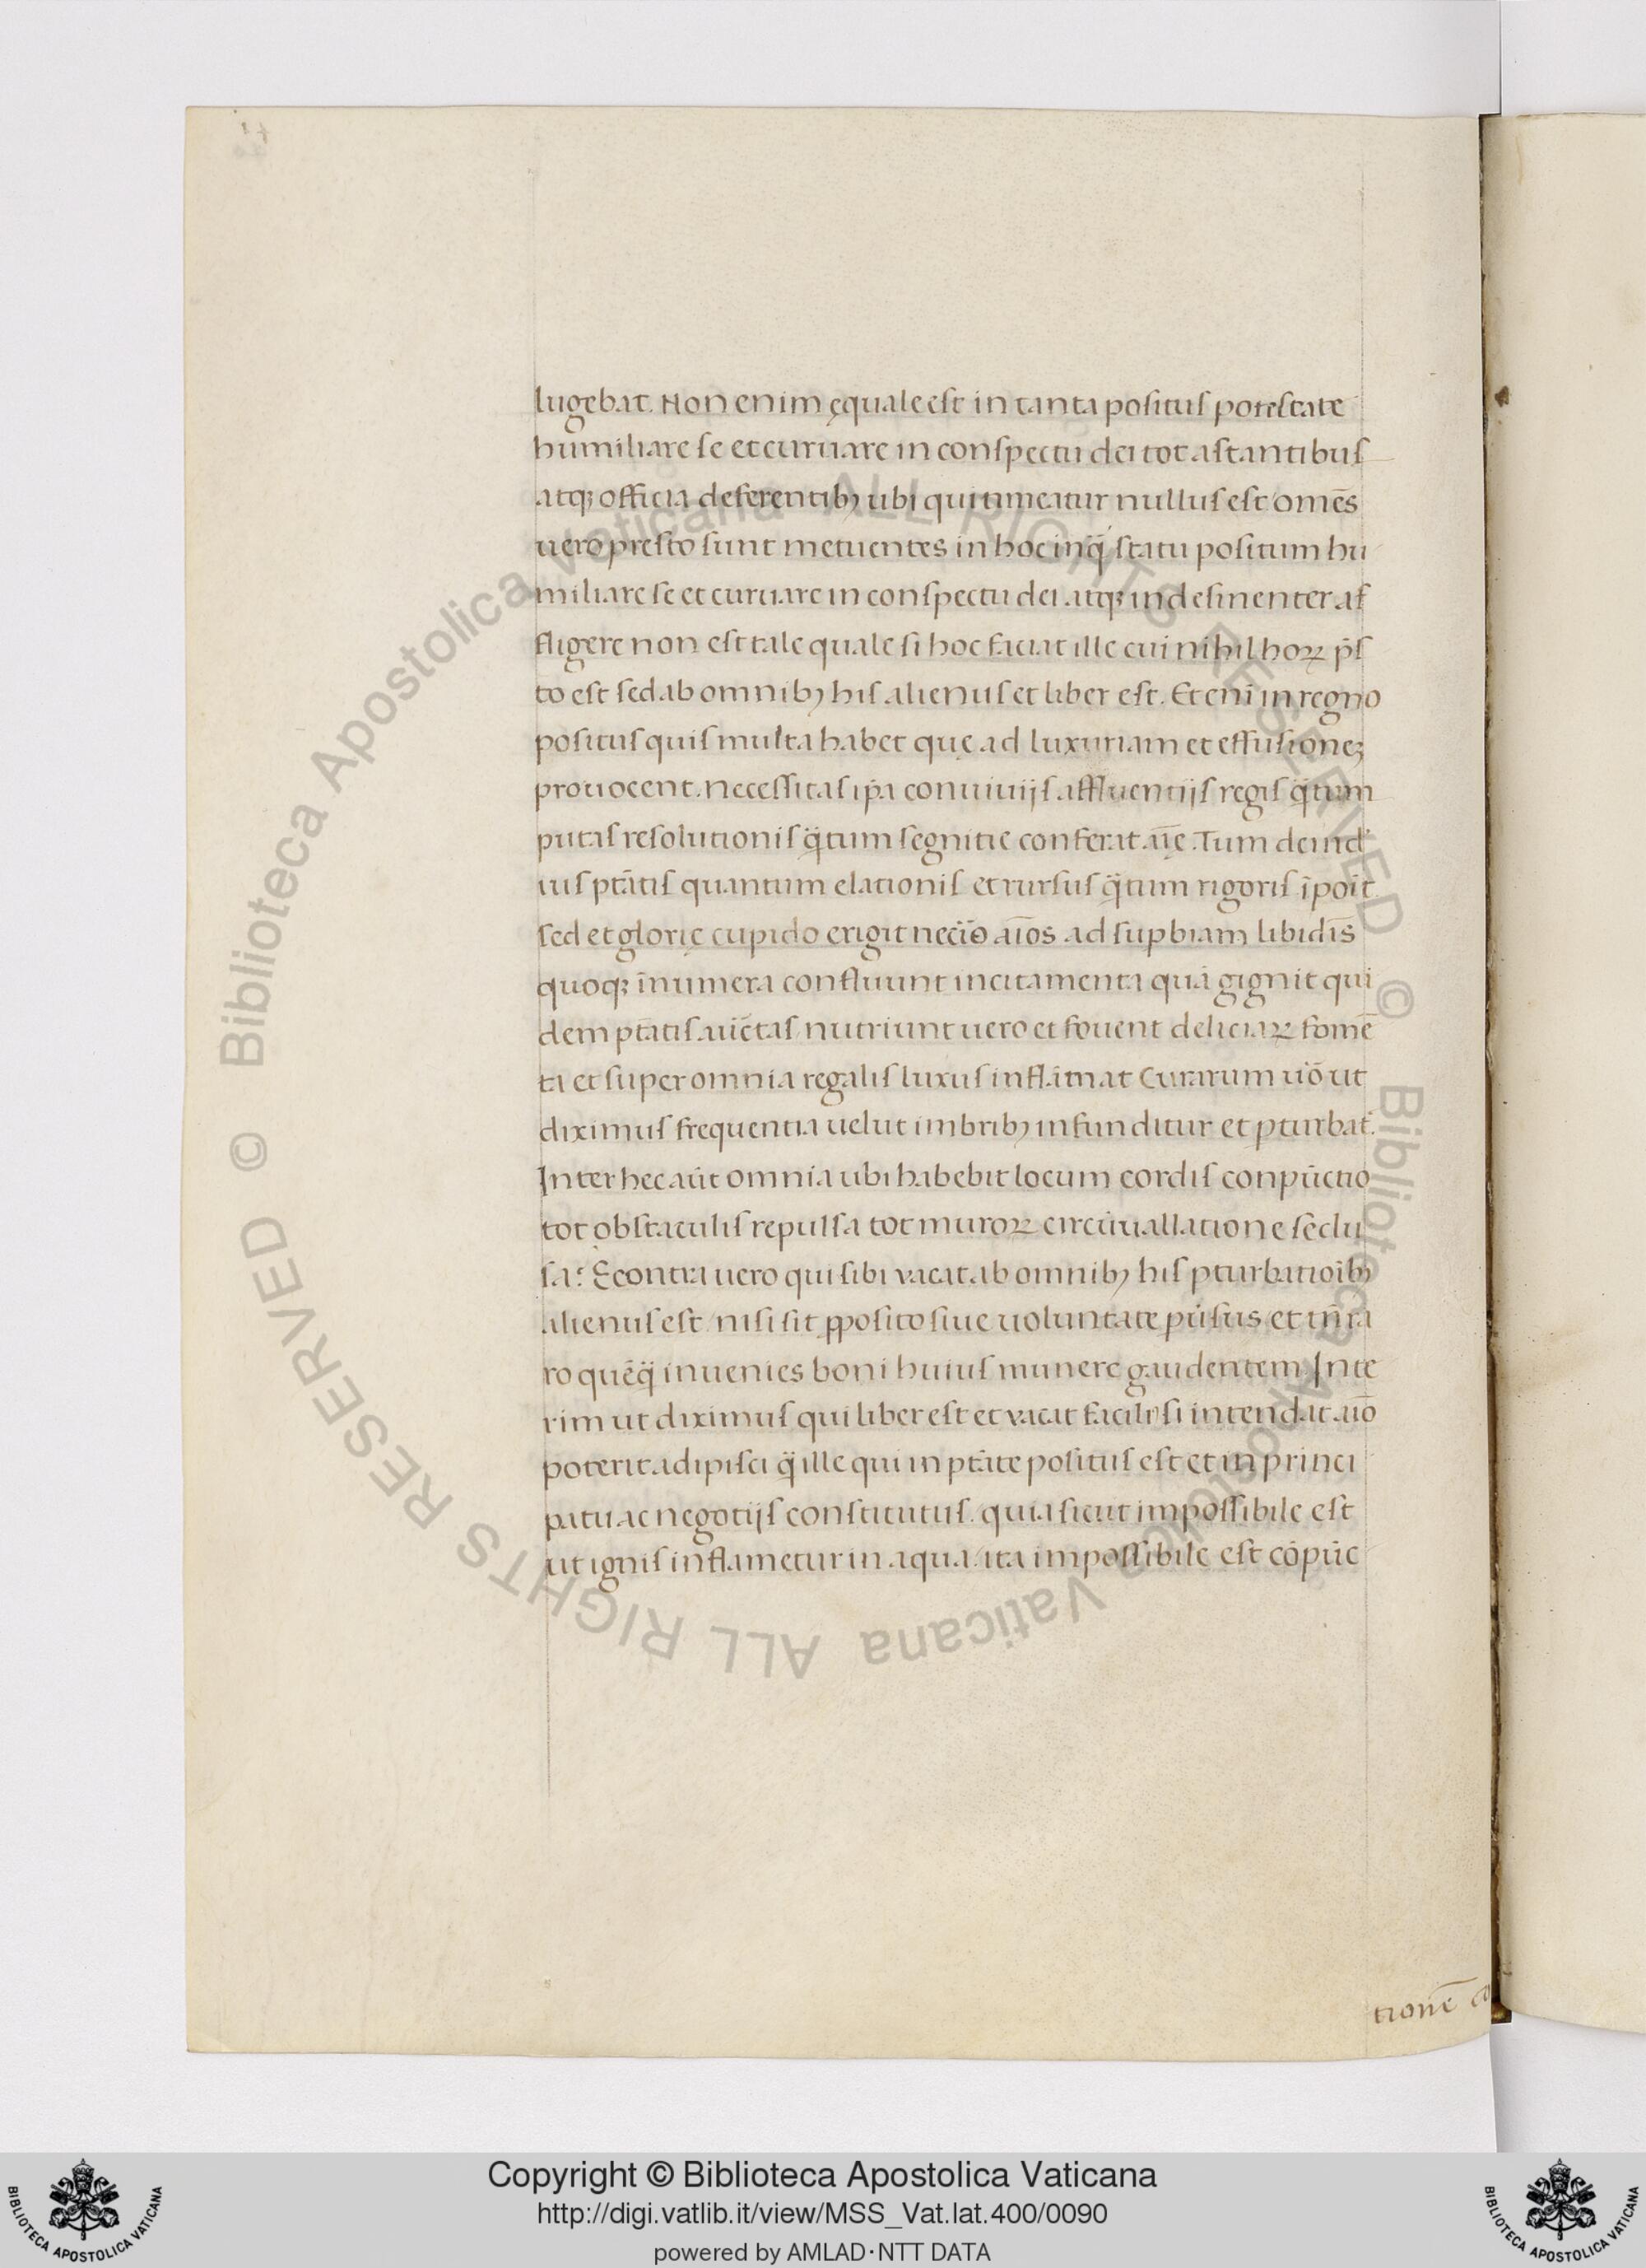 lugebat. Non enim ęquale est in tanta positus potestate
humiliare se et curuare in conspectu dei tot astantibus
atqꝫ officia deferentibꝫ ubi qui timeatur nullus est omēs
uero presto sunt metuentes in hoc inqͣ̈ statu positum hu
miliare se et curuare in conspectu dei atqꝫ indesinenter af
fligere non est tale quale si hoc faciat ille cui nihil hoꝝ p̄s
to est sed ab omnibꝫ his alienus et liber est. Et enī in regno
positus quis multa habet quę ad luxuriam et effusioneꝫ
prouocent. necessitas ip̄a conuiuijs affluentijs regis qͣ̈tum
putas resolutionis qͣ̈tum segnitie conferat. Tum deind'
ius ptātis quantum elationis et rursus qͣ̈tum rigoris īpoīt
sed et glorię cupido erigit aīos ad supbiam libidīs
quoqꝫ īnumera confluunt incitamenta quā gignit qui
dem ptātis nutriunt uero et fouent deliciaꝝ fomē
ta et super omnia regalis luxus inflāmat Curarum uō ut
diximus frequentia uelut imbribꝫ infunditur et pturbat.
Inter hec aūt omnia ubi habebit locum cordis conpūctio
tot obstaculis repulsa tot muroꝝ circūuallatione seclu
sa? Econtra uero qui sibi vacat ab omnibꝫ his pturbatioībꝫ
alienus est nisi sit ꝓposito siue uoluntate et
ro quēqͣ̈ inuenies boni huius munere gaudentem. Inte
rim ut diximus qui liber est et vacat facili' si intendat aīo
poterit adipisci qͣ̈ ille qui in ptāte positus est et in princi
patu ac negotijs constitutus. quia sicut impossibile est
ut ignis inflametur in aqua ita impossibile est cōpūc
tionē
Copyright © Biblioteca Apostolica Vaticana
http://digi.vatlib.it/view/MSS_Vat.lat.400/0090
powered by AMLAD·NTT DATA
BIBLIOTECA APOSTOLICA VATICANA
BIBLIOTECA APOSTOLICA VATICANA
© Biblioteca Apostolica Vaticana ALL RIGHTS RESERVED
© Biblioteca Apostolica Vaticana ALL RIGHTS RESERVED